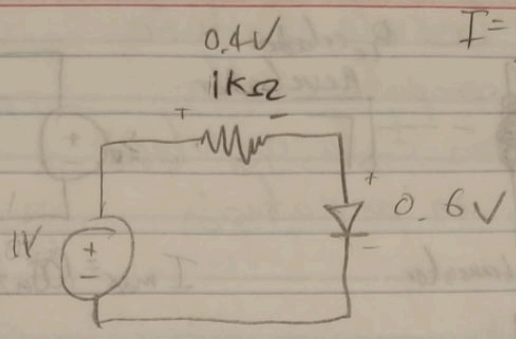 0.4V
I=
1KΩ
+ -
+
0.6V
1V
+
-
-